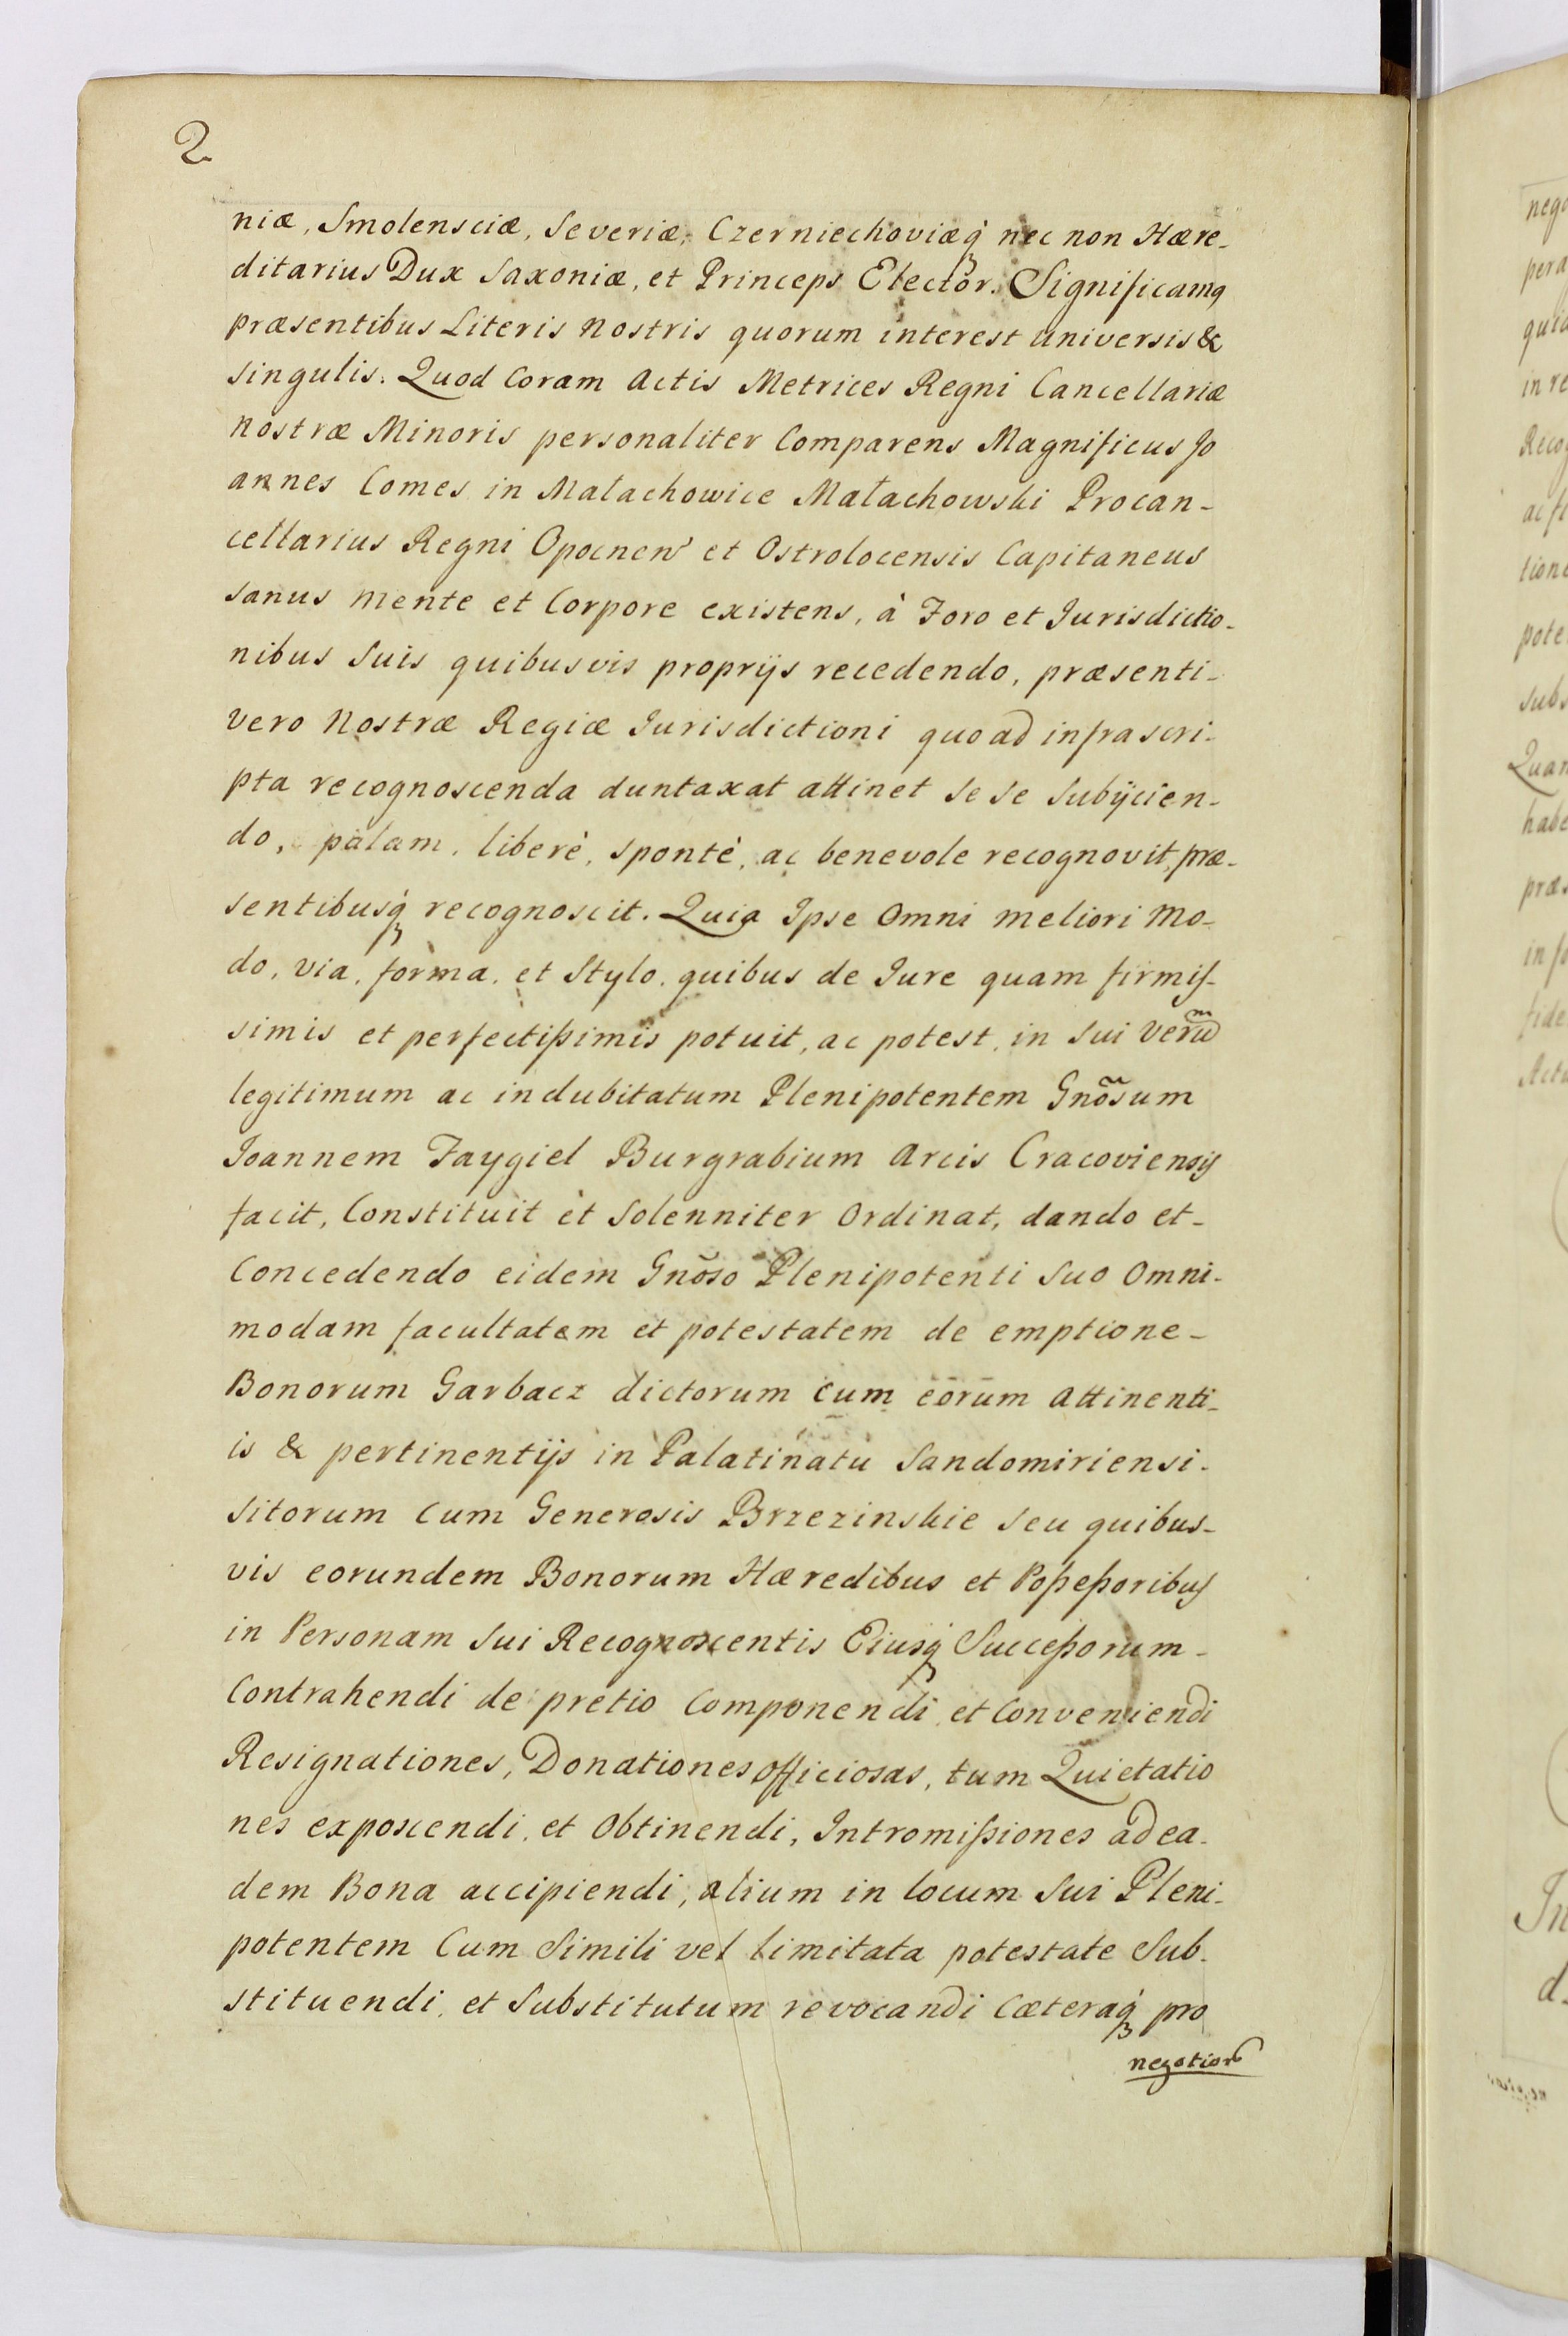 2
niæ, Smolensciæ, Severiæ, Czerniechoviæq́ʒ nec non Hære-
ditarius Dux Saxoniæ, et Princeps Elector. Significamq
præsentibus Literis Nostris quorum interest universis &
singulis. Quod Coram Actis Metrices Regni Cancellariæ
Nostræ Minoris personaliter Comparens Magnificus Jo
annes Comes in Małachowice Małachowski Procan-
cellarius Regni Opocnen' et Ostrolocensis Capitaneus
sanus mente et Corpore existens, à Foro et Jurisdictio-
nibus Suis quibusvis proprijs recedendo, præsenti-
vero Nostræ Regiæ Jurisdictioni quo ad infra scri-
pta recognoscenda duntaxat attinet se se Subijcien-
do, palam, liberè, sponté, ac benevole recognovit, præ-
sentibusq́ʒ recognoscit. Quia Ipse Omni meliori Mo-
do, via, forma, et Stylo, quibus de Jure quam firmiſ-
simis et perfectißimis potuit, ac potest, in Sui Verũ
legitimum ac indubitatum Plenipotentem Gnõsum
Joannem Faygiel Burgrabium Arcis Cracoviensis
facit, Constituit et Solenniter Ordinat, dando et-
Concedendo eidem Gnõso Plenipotenti Suo Omni-
modam facultatem et potestatem de emptione-
Bonorum Garbacz dictorum cum eorum attinenti-
is & pertinentijs in Palatinatu Sandomiriensi-
Sitorum Cum Generosis Brzezinskie seu quibus-
vis eorundem Bonorum Hæredibus et Poßeßoribus
in Personam Sui Recognoscentis Eiusq́ʒ Succeßorum-
Contrahendi de pretio Componendi et Conveniendi
Resignationes, Donationes officiosas, tum Quietatio
nes exposcendi, et Obtinendi, Intromißiones ad ea-
dem Bona accipiendi, alium in locum Sui Pleni-
potentem Cum Simili vel limitata potestate Sub-
stituendi, et Substitutum revocandi Cæteraq́ʒ pro